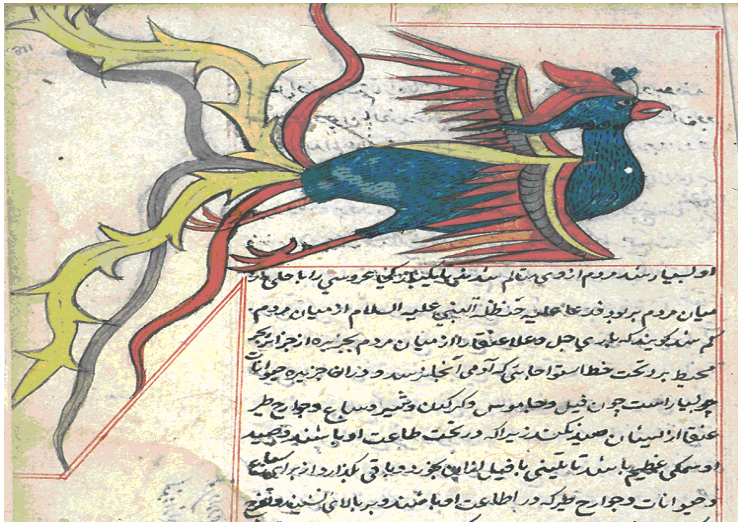 او بسیار شد مردم از وی متالم شدند
میان مردم بر بود فدعا علیه حنظلة النبی علیه السلام از میان مردم
کم شد کویند که باری جل و علا عنقا را از میان مردم بجزیره از جزایر بحر
محیط برد تحت خط استوا جایی که آدمی آنجا نرسد و در ان جزیره حیوانات
چو بسیار است چون فیل و جاموس و کرکدن و شیر و سباع و جوارح طیر
عنقا از ایشان صید نکند زیرا که در تحت طاعت او باشند و صید
او سمکی عظیم باشد تا تنینی یا فیل از این بخورد و باقی بگذارد از برای سباع
و حیوانات و جوارح طیر که در اطاعت او باشند و بر بالای نشیند و تفرج